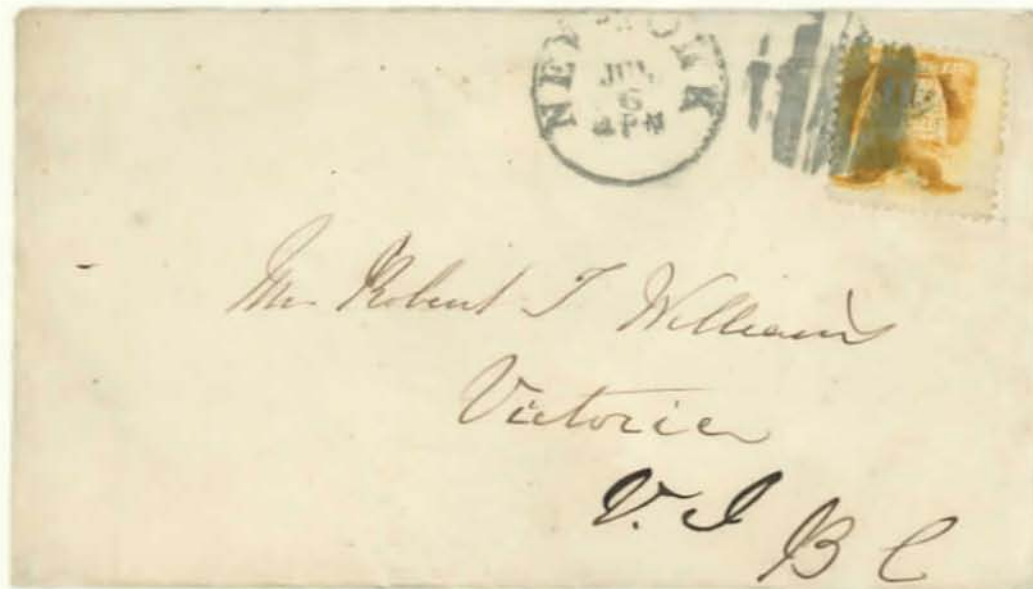 NEW YORK
JUL
6
Mr Robert T Williams
Victoria
V. I
B C